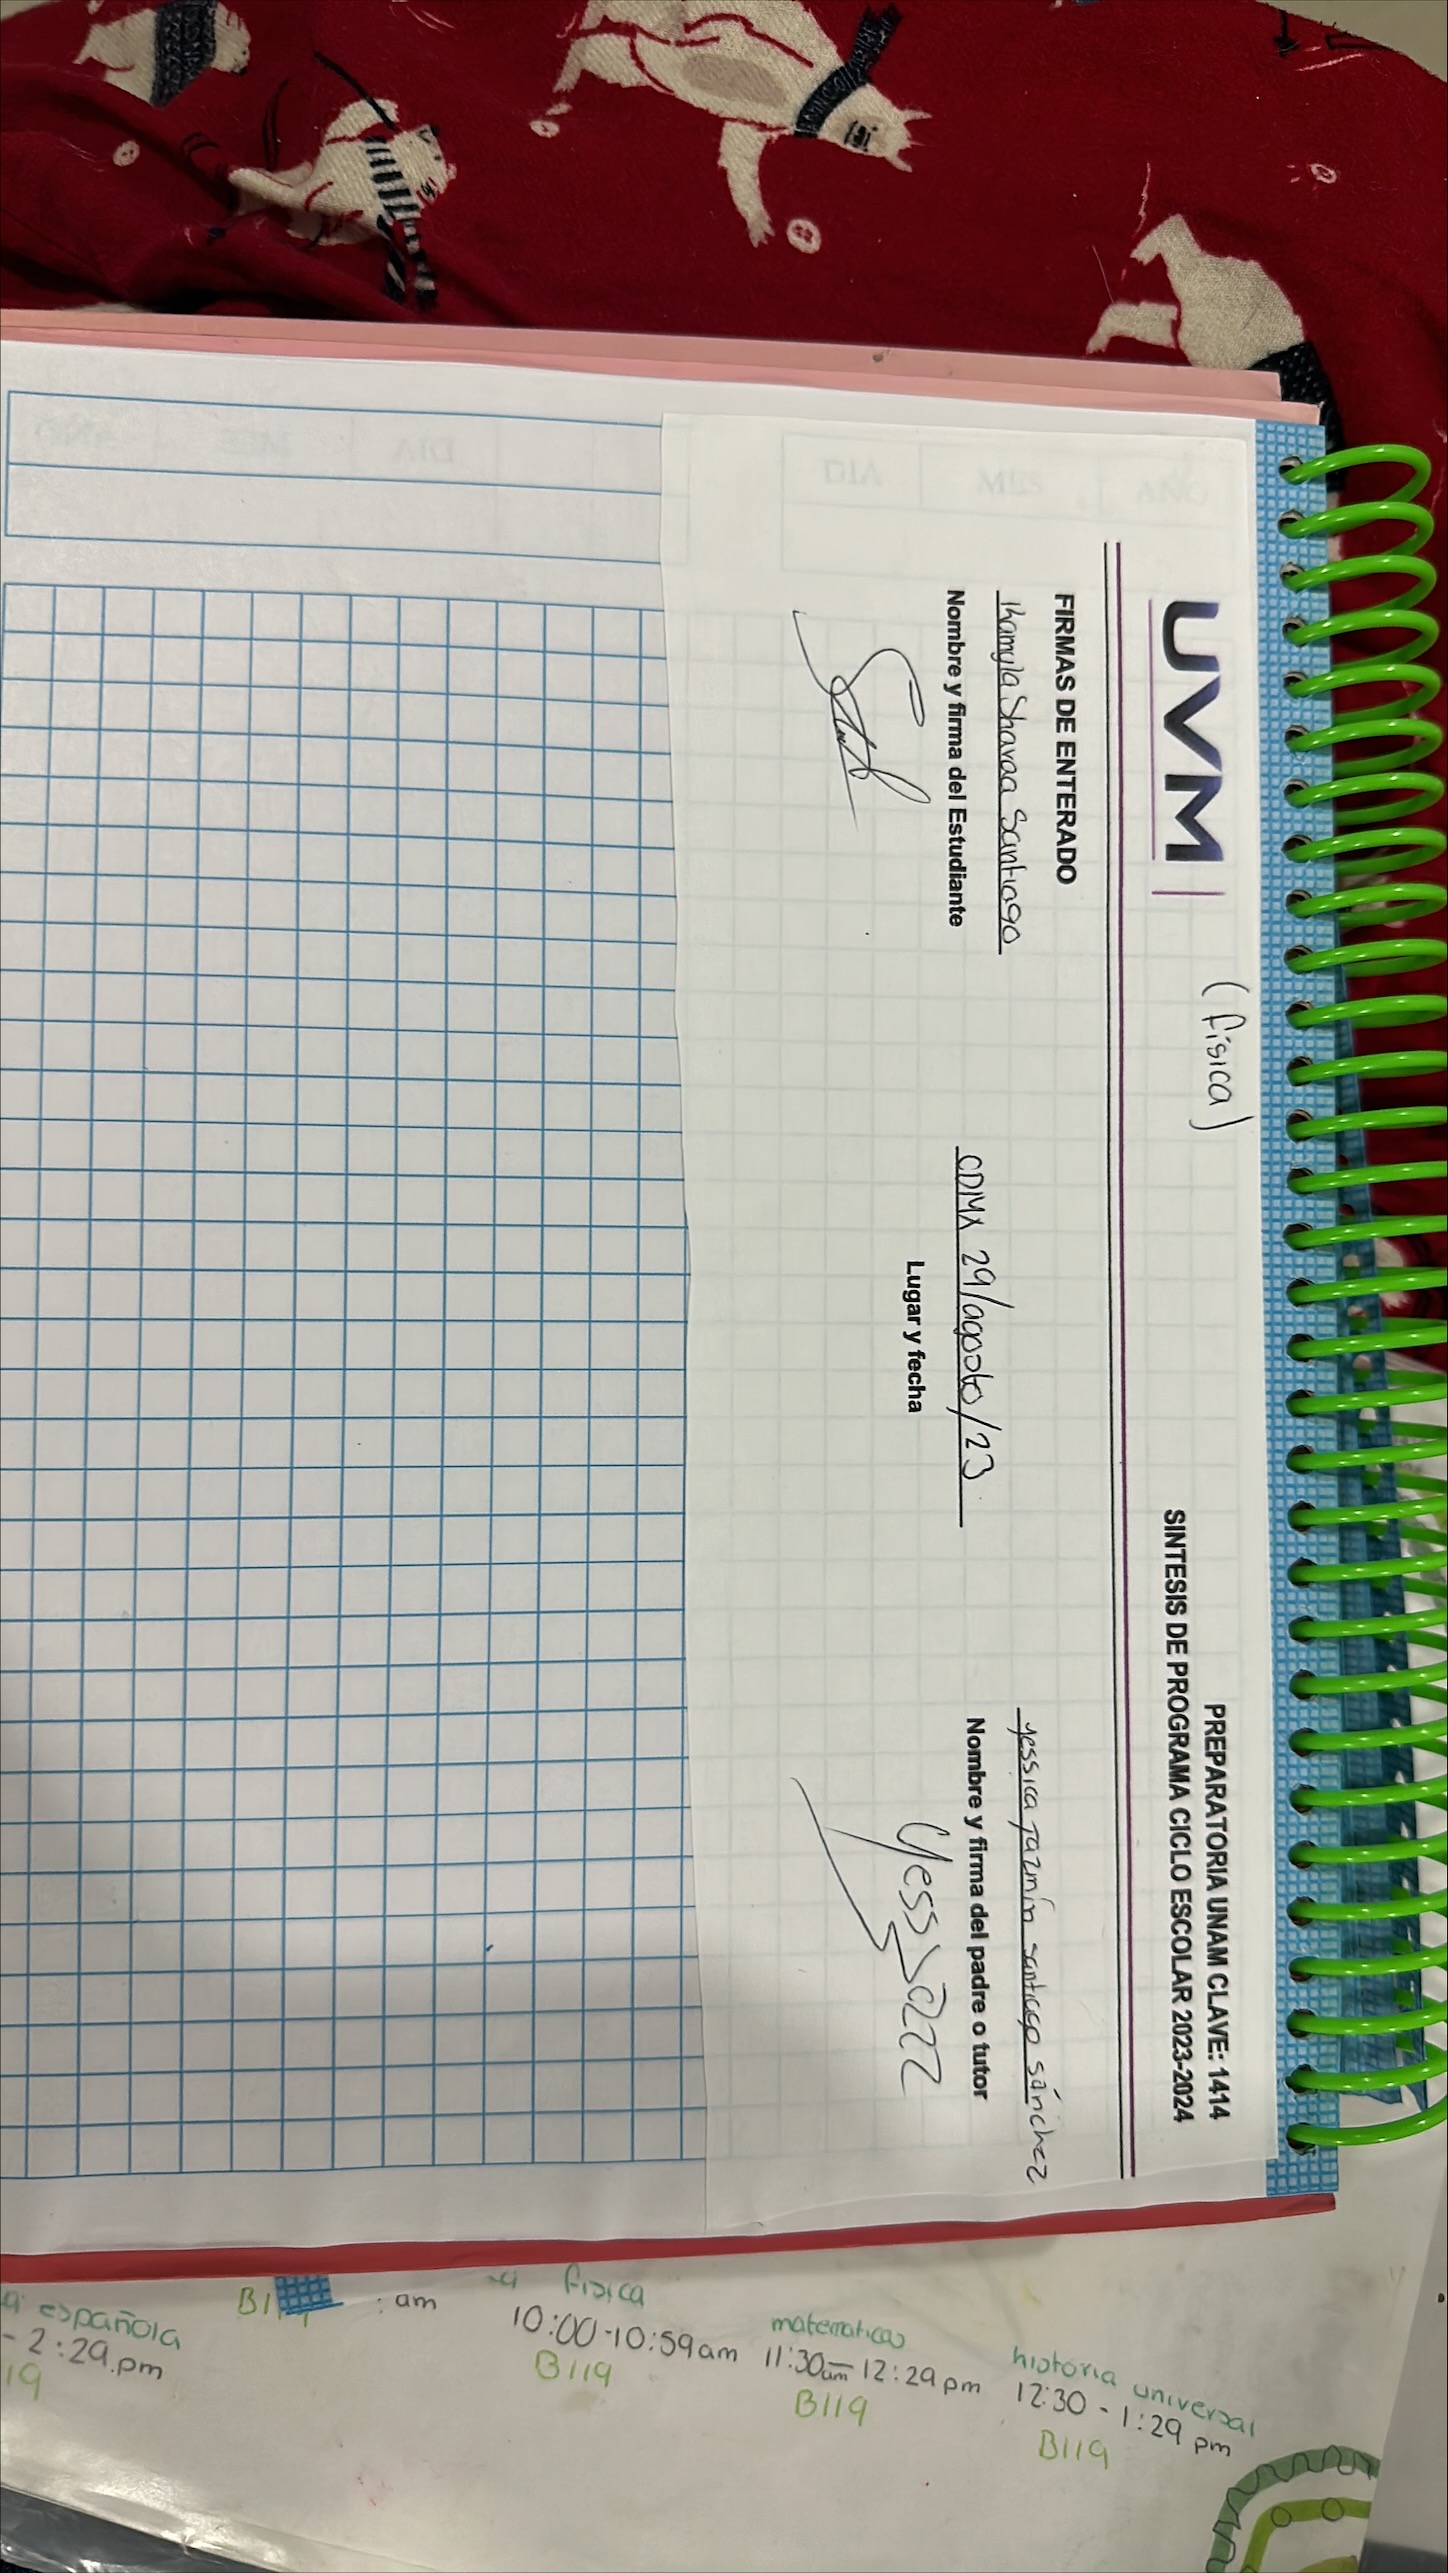 UVM
(física)
PREPARATORIA UNAM CLAVE: 1414
SINTESIS DE PROGRAMA CICLO ESCOLAR 2023-2024
FIRMAS DE ENTERADO
Santiago
Nombre y firma del Estudiante
CDMX 29/agosto/23
Lugar y fecha
yessica jazmín santiago sánchez
Nombre y firma del padre o tutor
Yessjazz
DIA MES AÑO
DIA MES AÑO
española
- 2:29.pm
19
am
física
10:00-10:59am
B119
matematicas
11:30am-12:29pm
B119
historia universal
12:30-1:29 pm
B119